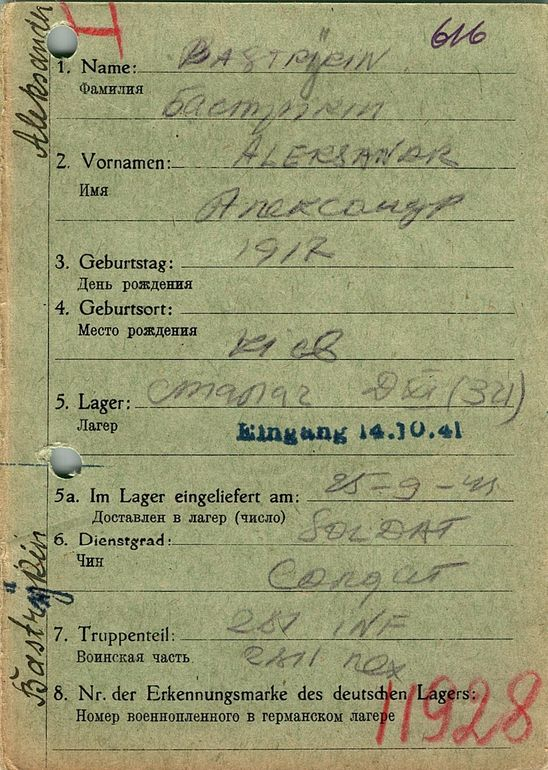 616
1. Name: BASTRŸKIN
Фамилия
Бастрикин
2. Vornamen: ALEKSANDR
Имя
Александр
3. Geburtstag: 1912
День рождения
4. Geburtsort:
Место рождения
Киев
5. Lager: сталаг (311)
Лагер
Eingang 14.10.41
5a. Im Lager eingeliefert am: 25-9-41
Доставлен в лагер (число)
6. Dienstgrad: SOLDAT
Чин
Солдат
7. Truppenteil: INF
Воинская часть
пех
8. Nr. der Erkennungsmarke des deutschen Lagers:
Номер военнопленного в германском лагере
11928
Bastrÿkin
Aleksander